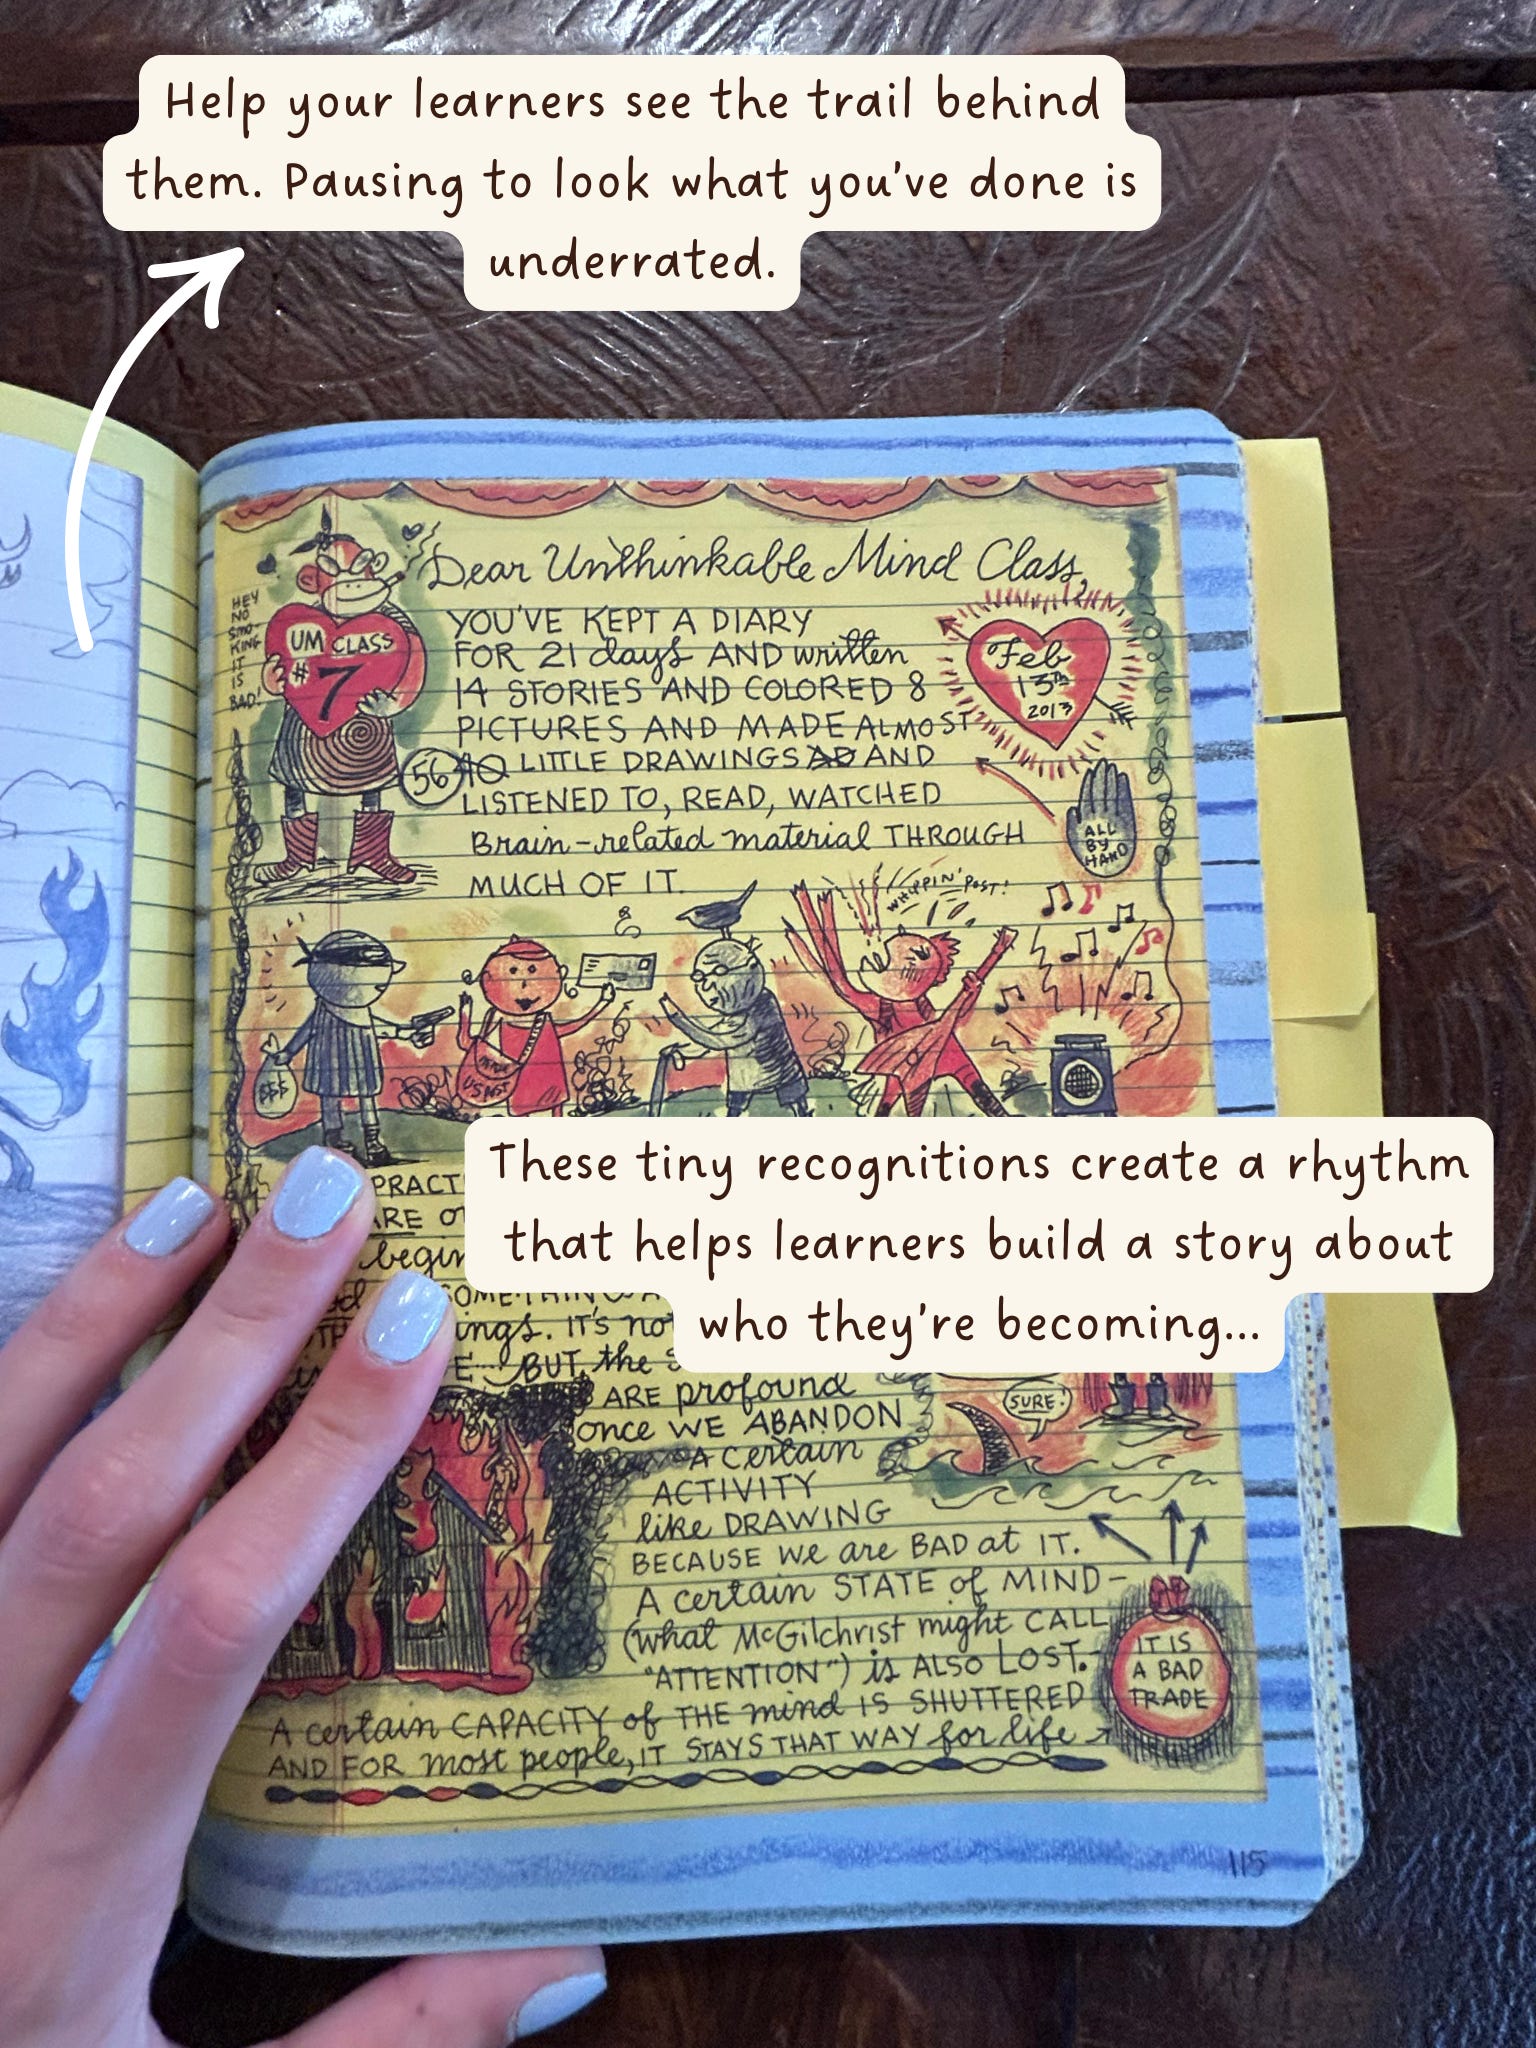 Help your learners see the trail behind
them. Pausing to look what you've done is
underrated.
Dear Unthinkable Mind Class,
HEY
NO
SMO-
KING
IT
IS
BAD!
UM CLASS
#7
YOU'VE KEPT A DIARY
FOR 21 days AND written
14 STORIES AND COLORED 8
PICTURES AND MADE ALMOST
56 40 LITTLE DRAWINGS AD AND
LISTENED TO, READ, WATCHED
Brain-related material THROUGH
MUCH OF IT.
Feb
13th
2013
ALL
BY
HAND
WHIPPIN' POST!
$$$
US POST
These tiny recognitions create a rhythm
that helps learners build a story about
who they're becoming...
PRACT
ARE
begin
ings. IT'S not
BUT, the
ARE profound
once WE ABANDON
A certain
ACTIVITY
like DRAWING
BECAUSE we are BAD at IT.
A certain STATE of MIND-
(what McGilchrist might CALL
"ATTENTION") is ALSO LOST.
A certain CAPACITY of THE mind IS SHUTTERED
AND FOR most people, IT STAYS THAT WAY for life
SURE!
IT IS
A BAD
TRADE
115